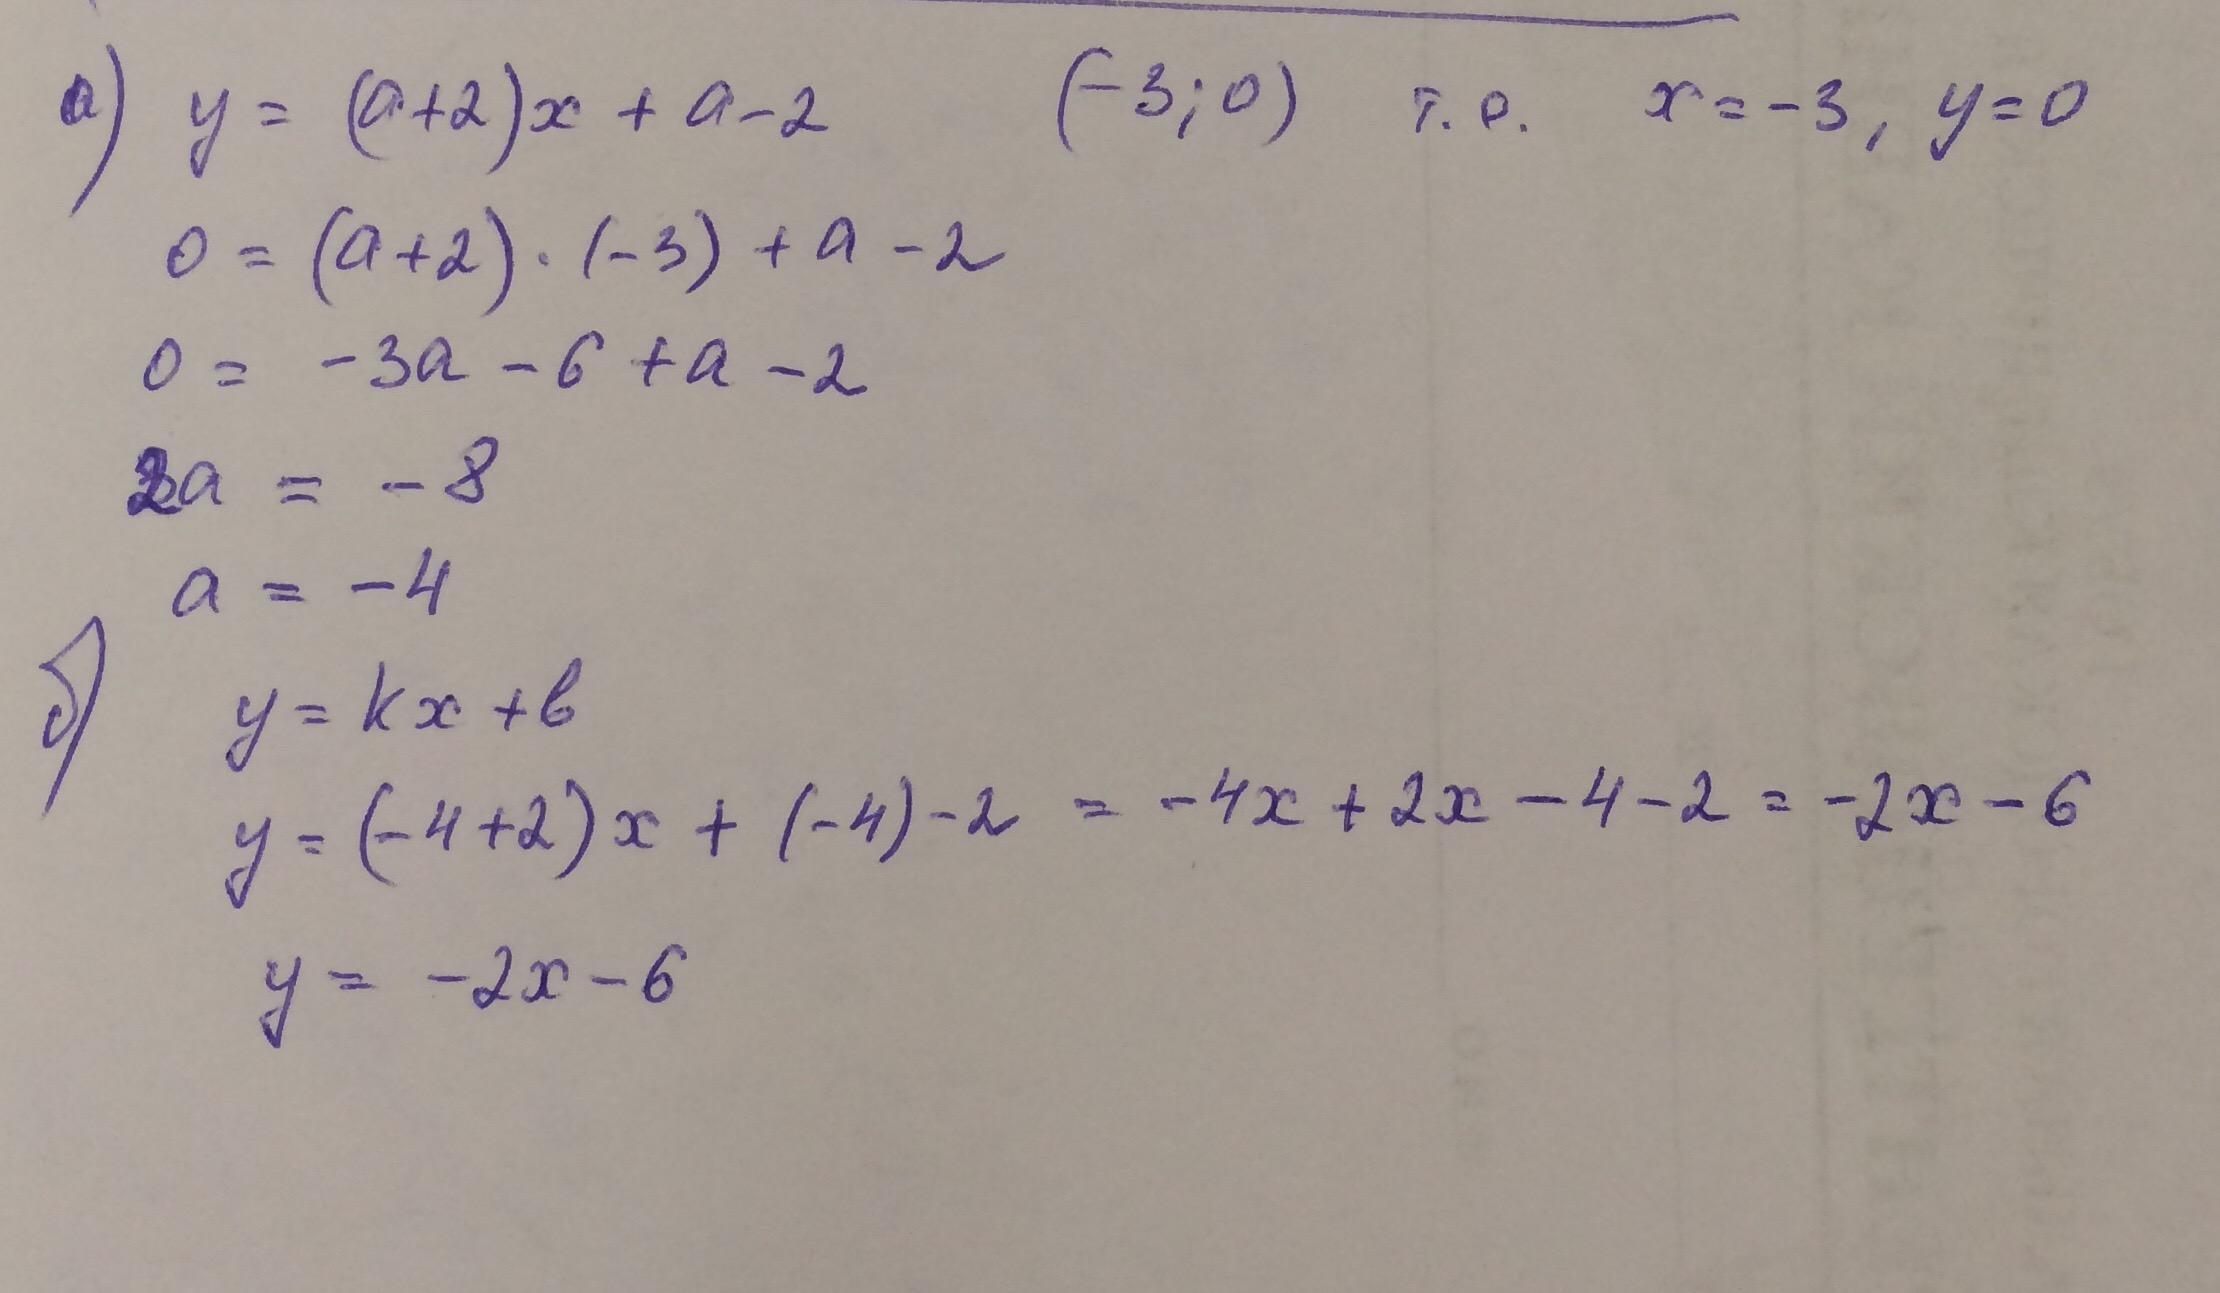 а) y = (a+2)x + a-2 (-3;0) т.е. x=-3, y=0
0 = (a+2)·(-3) + a - 2
0 = -3a - 6 + a - 2
2a = -8
a = -4
б) y = kx + b
y = (-4+2)x + (-4)-2 = -4x + 2x - 4 - 2 = -2x - 6
y = -2x - 6